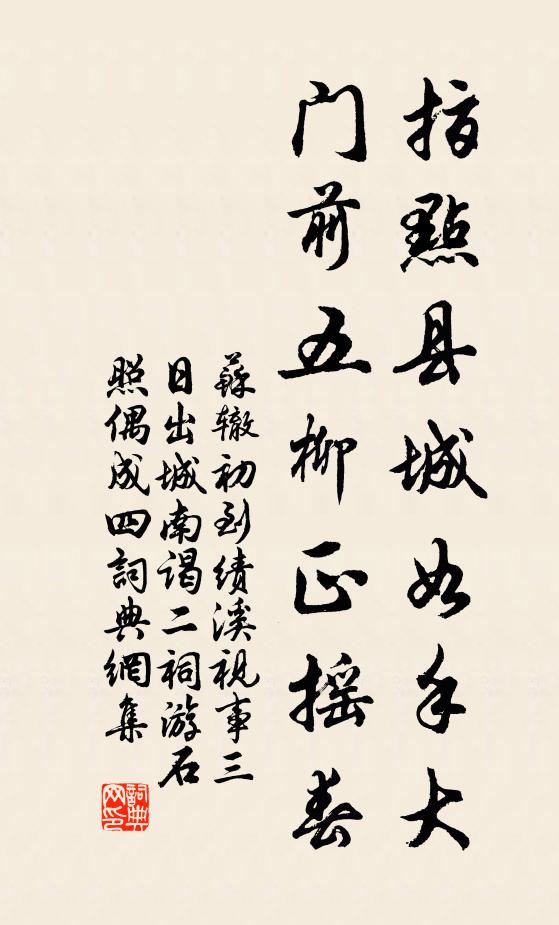 指點县城如手大
门前五柳正摇春
蘇辙初到绩溪视事三
日出城南谒二祠游石
照偶成四詞典網集
詞典网印